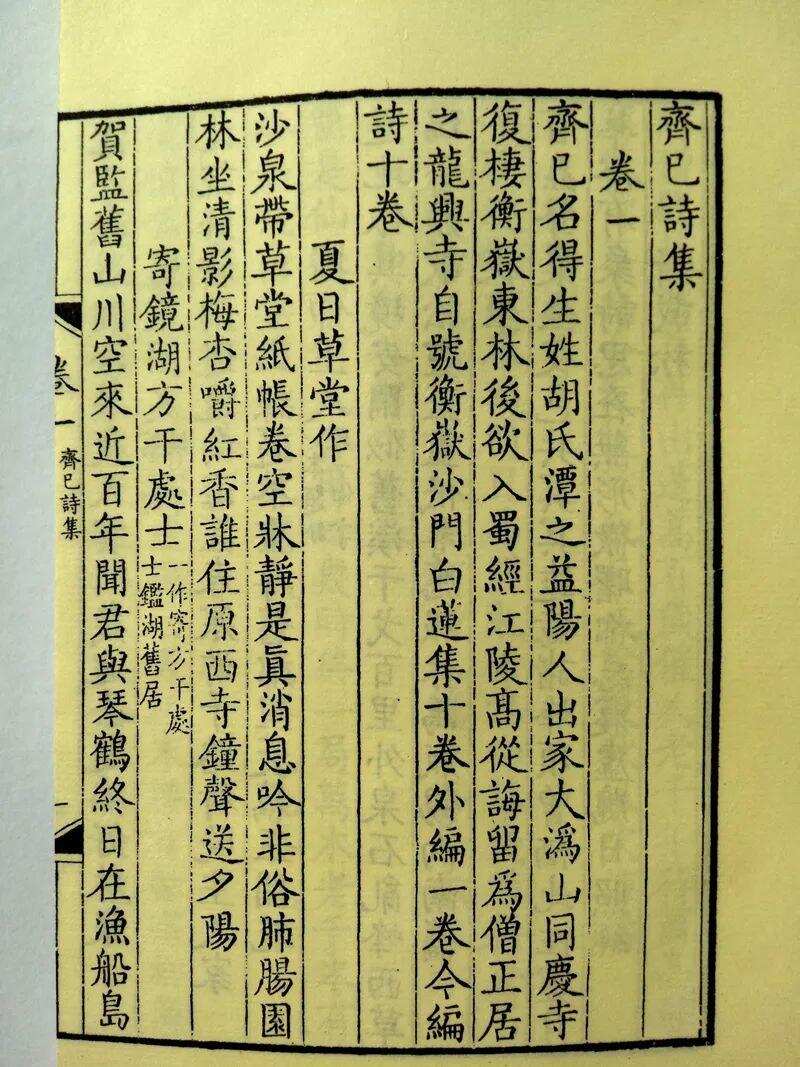 齊巳詩集
卷一
齊巳名得生姓胡氏潭之益陽人出家大潙山同慶寺
復棲衡嶽東林後欲入蜀經江陵髙從誨留爲僧正居
之龍興寺自號衡嶽沙門白蓮集十卷外編一卷今編
詩十卷
夏日草堂作
沙泉帶草堂紙帳卷空牀靜是眞消息吟非俗肺腸園
林坐清影梅杏嚼紅香誰住原西寺鐘聲送夕陽
寄鏡湖方干處士一作寄方干處
士鑑湖舊居
賀監舊山川空來近百年聞君與琴鶴終日在漁船島
卷一 齊巳詩集 一